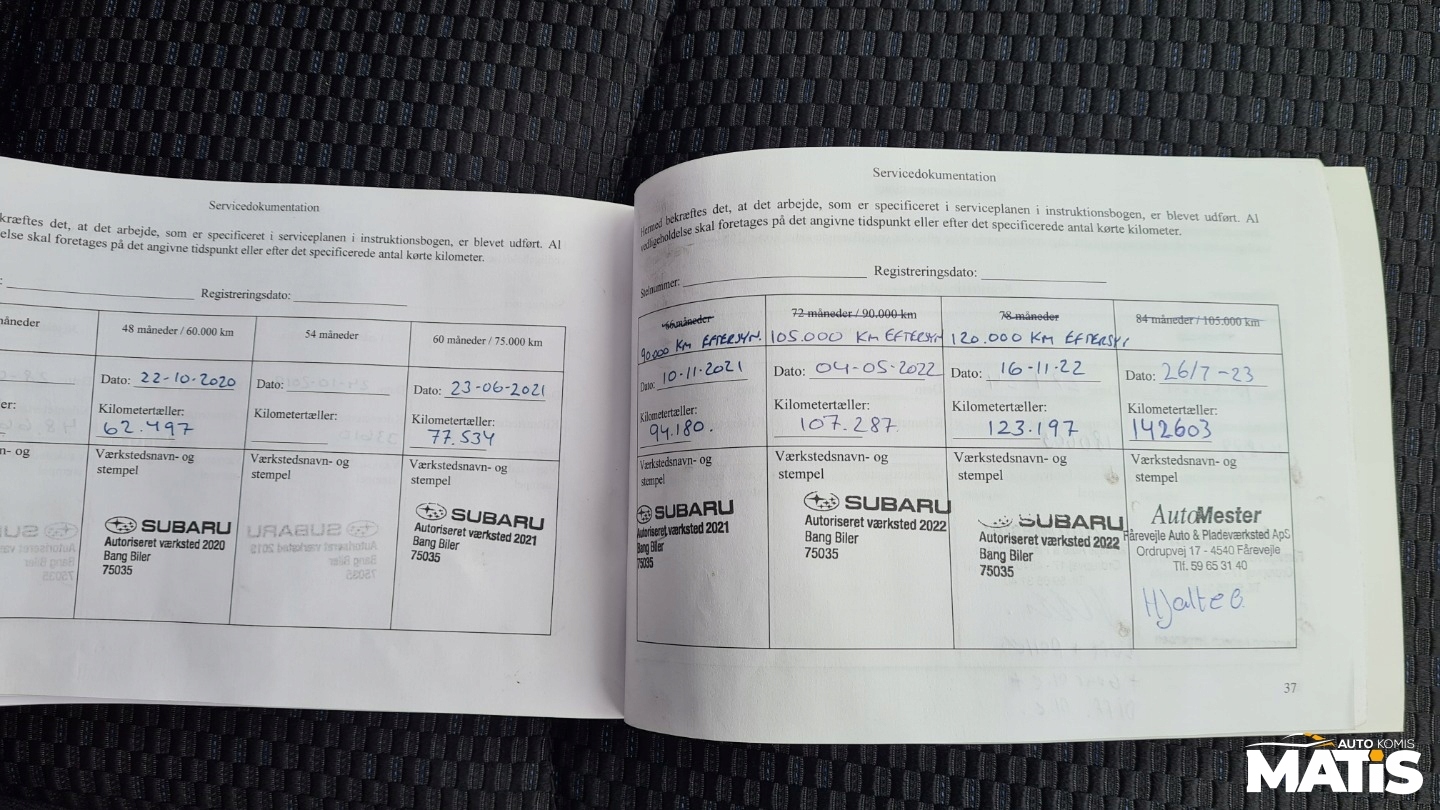 Servicedokumentation
kræftes det, at det arbejde, som er specificeret i serviceplanen i instruktionsbogen, er blevet udført. Al
else skal foretages på det angivne tidspunkt eller efter det specificerede antal kørte kilometer.
: Registreringsdato:
måneder
48 måneder / 60.000 km
54 måneder
60 måneder / 75.000 km
Dato: 22-10-2020
Dato:
Dato: 23-06-2021
er:
Kilometertæller:
62.497
Kilometertæller:
Kilometertæller:
77.534
n- og
Værkstedsnavn- og
stempel
Værkstedsnavn- og
stempel
Værkstedsnavn- og
stempel
SUBARU
Autoriseret værksted 2020
Bang Biler
75035
SUBARU
Autoriseret værksted 2021
Bang Biler
75035
Servicedokumentation
Hermed bekræftes det, at det arbejde, som er specificeret i serviceplanen i instruktionsbogen, er blevet udført. Al
vedligeholdelse skal foretages på det angivne tidspunkt eller efter det specificerede antal kørte kilometer.
Stelnummer: Registreringsdato:
66 måneder
90.000 KM EFTERSYN.
72 måneder / 90.000 km
105.000 KM EFTERSYN
78 måneder
120.000 KM EFTERSYN
84 måneder / 105.000 km
Dato: 10-11-2021
Dato: 04-05-2022
Dato: 16-11-22
Dato: 26/7-23
Kilometertæller:
94.180.
Kilometertæller:
107.287.
Kilometertæller:
123.197
Kilometertæller:
142603
Værkstedsnavn- og
stempel
Værkstedsnavn- og
stempel
Værkstedsnavn- og
stempel
Værkstedsnavn- og
stempel
SUBARU
Autoriseret værksted 2021
Bang Biler
75035
SUBARU
Autoriseret værksted 2022
Bang Biler
75035
SUBARU
Autoriseret værksted 2022
Bang Biler
75035
AutoMester
Fårevejle Auto & Pladeværksted ApS
Ordrupvej 17 - 4540 Fårevejle
Tlf. 59 65 31 40
Hjalte B.
37
AUTO KOMIS
MATIS